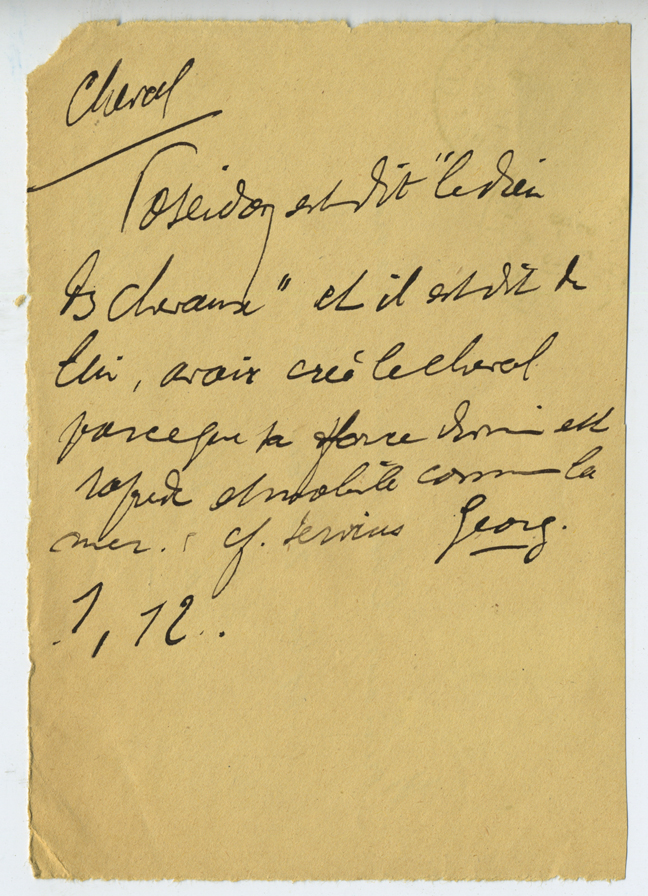 Cheval
Poseidon est dit "le dieu
des chevaux" et il est dit de
lui, avoir créé le cheval
parceque sa force divine est
rapide et mobile comme la
mer. cf. Servius Georg.
1, 12.